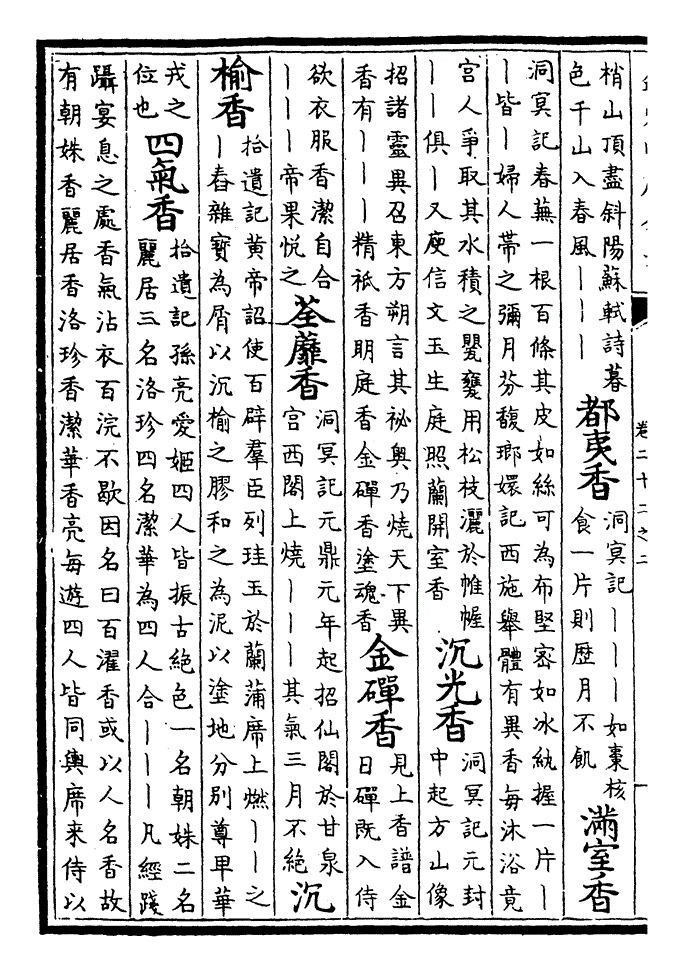 卷二十二之二
梢山頂盡斜陽蘇軾詩暮
色千山入春風｜｜｜
都夷香
洞冥記｜｜｜如棗核
食一片則歴月不飢
滿室香
洞冥記春蕪一根百條其皮如絲可為布堅宻如冰紈握一片｜
｜皆｜婦人帶之彌月芬馥瑯嬛記西施舉體有異香每沐浴竟
宫人爭取其水積之甖甕用松枝灑於帷幄
｜｜俱｜又庾信文玉生庭照蘭開室香
沉光香
洞冥記元封
中起方山像
招諸靈異召東方朔言其祕奥乃燒天下異
香有｜｜｜精祗香眀庭香金磾香塗魂香
金磾香
見上香譜金
日磾既入侍
欲衣服香潔自合
｜｜｜帝果悦之
荃蘼香
洞冥記元鼎元年起招仙閣於甘泉
宫西閣上燒｜｜｜其氣三月不絶
沉
榆香
拾遺記黄帝詔使百辟羣臣列珪玉於蘭蒲席上燃｜｜之
｜舂雜寶為屑以沉榆之膠和之為泥以塗地分别尊卑華
戎之
位也
四氣香
拾遺記孫亮愛姬四人皆振古絶色一名朝姝二名
麗居三名洛珍四名潔華為四人合｜｜｜凡經踐
躡宴息之處香氣沾衣百浣不歇因名曰百濯香或以人名香故
有朝姝香麗居香洛珍香潔華香亮每遊四人皆同輿席来侍以